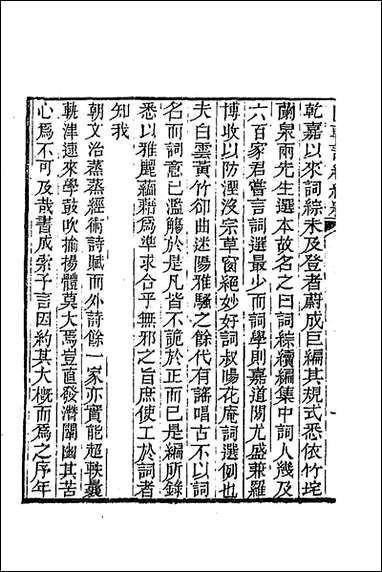 乾嘉以來詞綜未及登者蔚成巨編其規式悉依竹垞
蘭泉兩先生選本故名之曰詞綜續編集中詞人幾及
六百家君嘗言詞選最少而詞學則嘉道間尤盛兼羅
博收以防湮沒宗草窗絕妙好詞叔暘花庵詞選例也
夫白雲黃竹卻曲迷陽雅騷之餘代有謌唱古不以詞
名而詞意已濫觴於是凡皆不詭於正而已是編所錄
悉以雅麗蘊藉為準求合乎無邪之旨庶使工於詞者
知我
朝文治蒸蒸經術詩賦而外詩餘一家亦實能超軼曩
軌津逮來學鼓吹揄揚體莫大焉豈直發潛闡幽其苦
心為不可及哉書成索予言因約其大概而為之序年